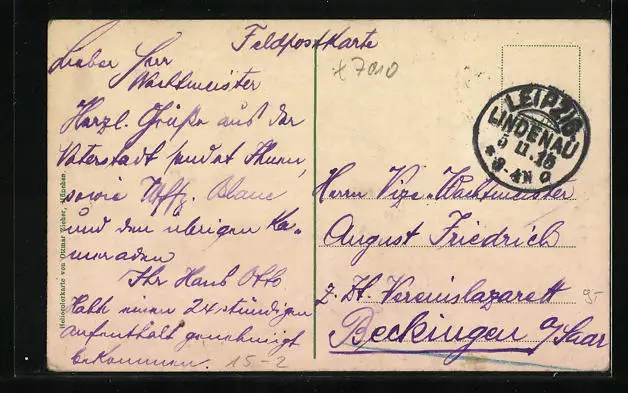 Feldpostkarte
x 7010
Lieber Herr
Wachtmeister
Herzl. Grüße aus der
Vaterstadt sendet Ihnen,
sowie Uffz. Blanc
und den übrigen Ka-
meraden
Ihr Hans Otto
Hatte einen 24 stündigen
Aufenthalt genehmigt
bekommen.
15-2
Heliocolorkarte von Ottmar Zieher, München.
LEIPZIG
LINDENAU
11.16
8-4N
Herrn Vize-Wachtmeister
August Friedrich
z. Zt. Vereinslazarett
Beckingen a/Saar